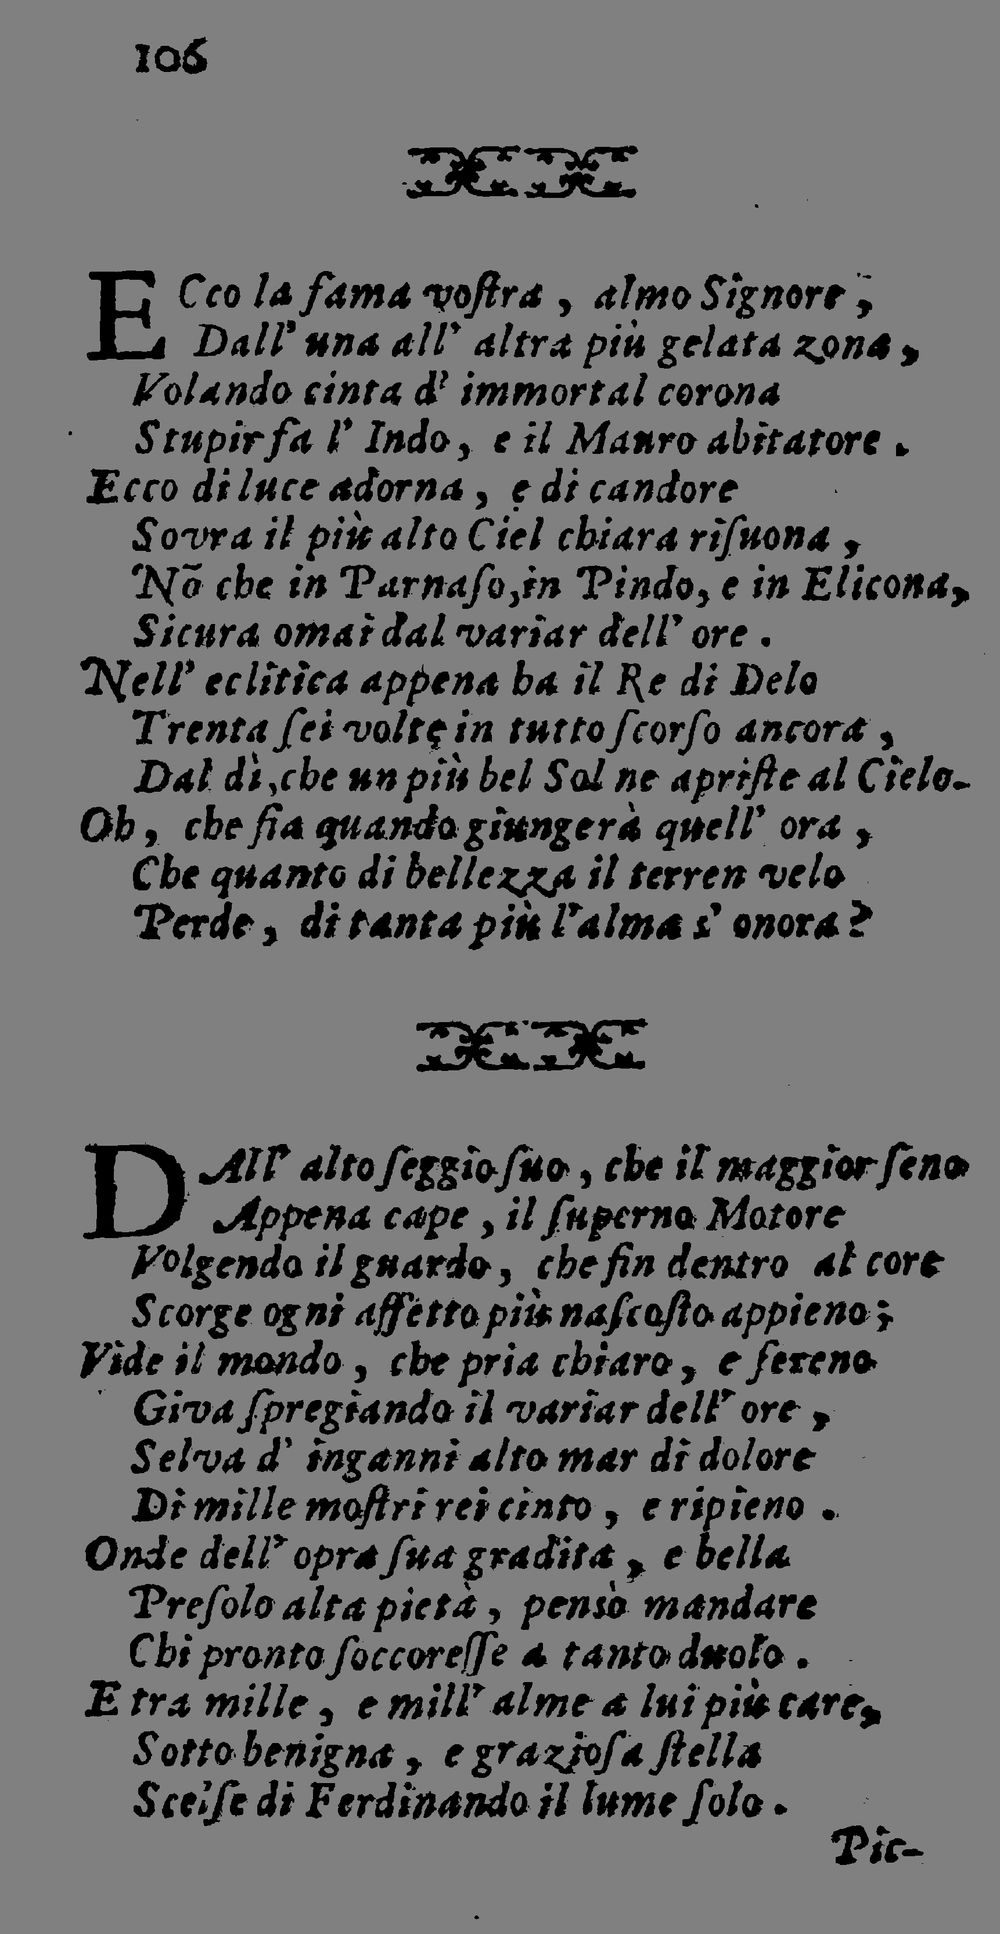 106
ECco la fama voſtra, almo Signore,
Dall' una all' altra più gelata zona,
Volando cinta d' immortal corona
Stupir fa l' Indo, e il Mauro abitatore.
Ecco di luce adorna, e di candore
Sovra il più alto Ciel chiara riſuona,
Nō che in Parnaſo, in Pindo, e in Elicona,
Sicura omai dal variar dell' ore.
Nell' eclitica appena ha il Re di Delo
Trenta ſei volte in tutto ſcorſo ancora,
Dal dì, che un più bel Sol ne apriſte al Cielo.
Oh, che fia quando giungerà quell' ora,
Che quanto di bellezza il terren velo
Perde, di tanta più l'alma s' onora?
DAll' alto ſeggio ſuo, che il maggior ſeno
Appena cape, il ſuperno Motore
Volgendo il guardo, che fin dentro al core
Scorge ogni affetto più naſcoſto appieno;
Vide il mondo, che pria chiaro, e ſereno
Giva ſpregiando il variar dell' ore,
Selva d' inganni alto mar di dolore
Di mille moſtri rei cinto, e ripieno.
Onde dell' opra ſua gradita, e bella
Preſolo alta pietà, pensò mandare
Chi pronto ſoccoreſſe a tanto duolo.
E tra mille, e mill' alme a lui più care,
Sotto benigna, e grazioſa ſtella
Scelſe di Ferdinando il lume ſolo.
Pic-